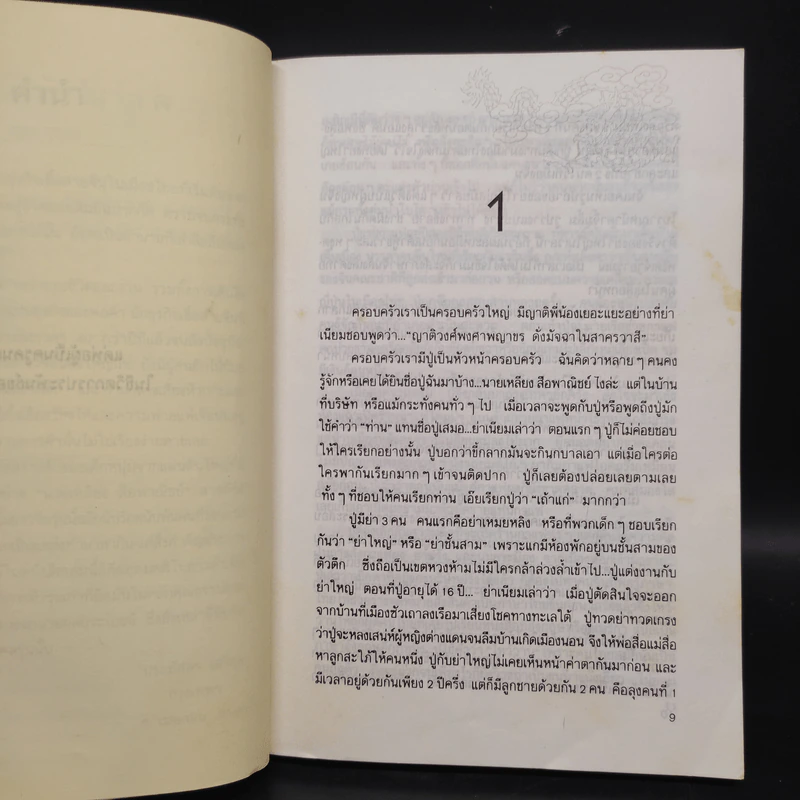 1
ครอบครัวเราเป็นครอบครัวใหญ่ มีญาติพี่น้องเยอะแยะอย่างที่ย่า
เนียมชอบพูดว่า..."ญาติวงศ์พงศาพญาขร ดั่งมัจฉาในสาครวาสี"
ครอบครัวเรามีปู่เป็นหัวหน้าครอบครัว ฉันคิดว่าหลาย ๆ คนคง
รู้จักหรือเคยได้ยินชื่อปู่ฉันมาบ้าง...นายเหลียง สือพาณิชย์ ไงล่ะ แต่ในบ้าน
ที่บริษัท หรือแม้กระทั่งคนทั่ว ๆ ไป เมื่อเวลาจะพูดกับปู่หรือพูดถึงปู่มัก
ใช้คำว่า "ท่าน" แทนชื่อปู่เสมอ...ย่าเนียมเล่าว่า ตอนแรก ๆ ปู่ก็ไม่ค่อยชอบ
ให้ใครเรียกอย่างนั้น ปู่บอกว่าขี้กลากมันจะกินกบาลเอา แต่เมื่อใครต่อ
ใครพากันเรียกมาก ๆ เข้าจนติดปาก ปู่ก็เลยต้องปล่อยเลยตามเลย
ทั้ง ๆ ที่ชอบให้คนเรียกท่าน เอ๊ยเรียกปู่ว่า "เถ้าแก่" มากกว่า
ปู่มีย่า 3 คน คนแรกคือย่าเหมยหลิง หรือที่พวกเด็ก ๆ ชอบเรียก
กันว่า "ย่าใหญ่" หรือ "ย่าชั้นสาม" เพราะแกมีห้องพักอยู่บนชั้นสามของ
ตัวตึก ซึ่งถือเป็นเขตหวงห้ามไม่มีใครกล้าล่วงล้ำเข้าไป...ปู่แต่งงานกับ
ย่าใหญ่ ตอนที่ปู่อายุได้ 16 ปี... ย่าเนียมเล่าว่า เมื่อปู่ตัดสินใจจะออก
จากบ้านที่เมืองซัวเถาลงเรือมาเสี่ยงโชคทางทะเลใต้ ปู่ทวดย่าทวดเกรง
ว่าปู่จะหลงเสน่ห์ผู้หญิงต่างแดนจนลืมบ้านเกิดเมืองนอน จึงให้พ่อสื่อแม่สื่อ
หาลูกสะใภ้ให้คนหนึ่ง ปู่กับย่าใหญ่ไม่เคยเห็นหน้าค่าตากันมาก่อน และ
มีเวลาอยู่ด้วยกันเพียง 2 ปีครึ่ง แต่ก็มีลูกชายด้วยกัน 2 คน คือลุงคนที่ 1
9